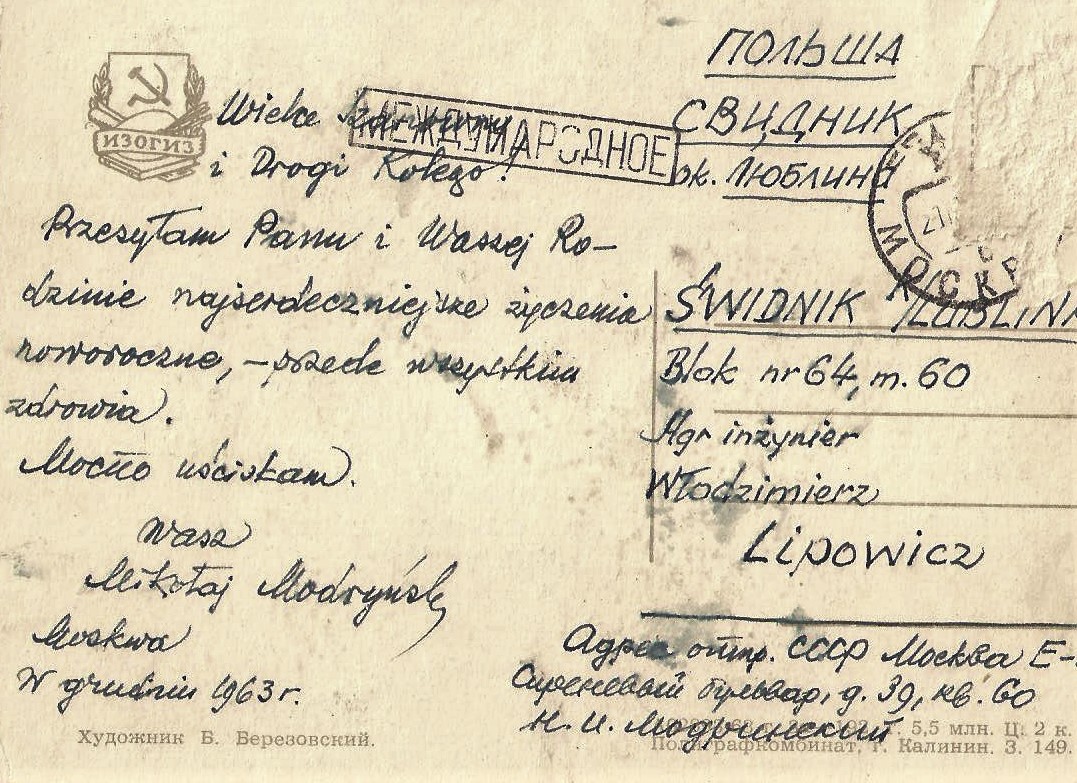 ИЗОГИЗ
Wielce Szanowny
i Drogi Kolego!
Przesyłam Panu i Waszej Ro-
dzinie najserdeczniejsze życzenia
noworoczne, – przede wszystkim
zdrowia.
Mocno uściskam.
Wasz
Mikołaj Modryński
Moskwa
W grudniu 1963 r.
Художник Б. Березовский.
МЕЖДУНАРОДНОЕ
ПОЛЬША
СВИДНИК
ок. ЛЮБЛИНА
МОСКВА
ŚWIDNIK K/LUBLINA
Blok nr 64, m. 60
Mgr inżynier
Włodzimierz
Lipowicz
Адрес отпр. СССР Москва Е-
Сиреневый бульвар, д. 39, кв. 60
Н. И. Модринский
5,5 млн. Ц. 2 к.
Полиграфкомбинат, г. Калинин. З. 149.